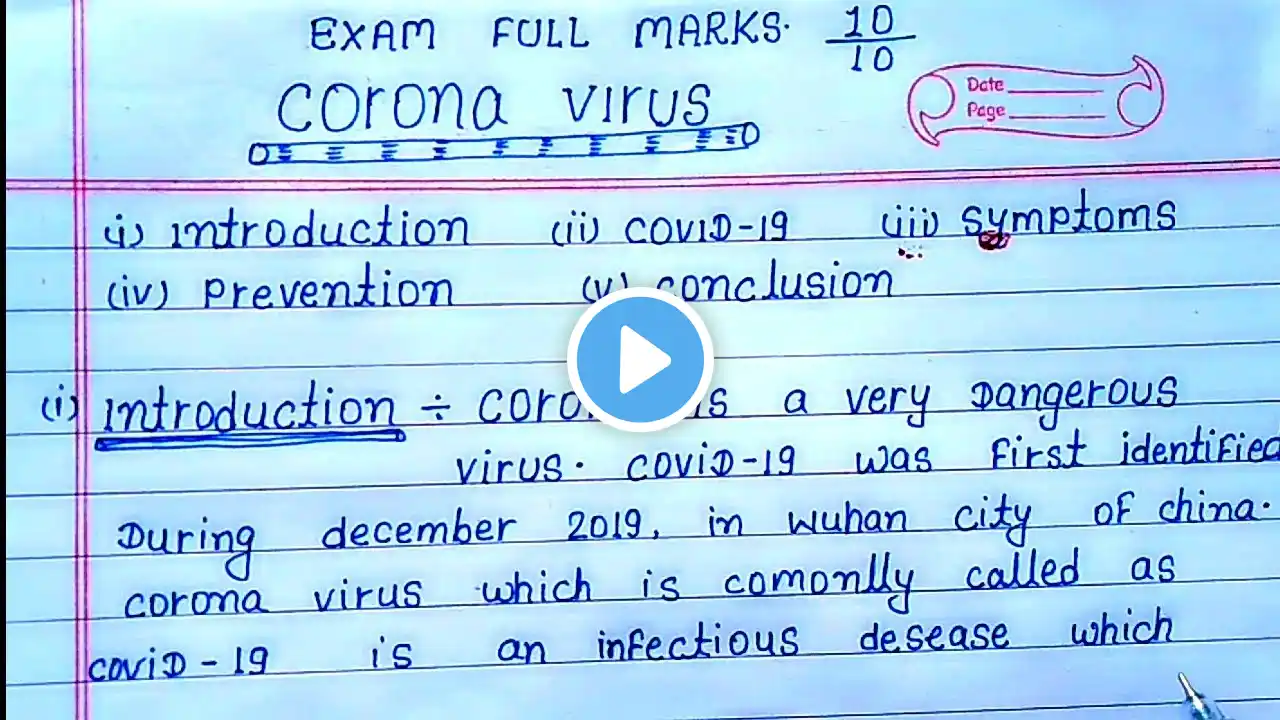 EXAM FULL MARKS. 10/10
corona virus
Date
Page
(i) introduction (ii) COVID-19 (iii) symptoms
(iv) prevention (v) conclusion
(i) introduction ÷ is a very Dangerous
virus. coviD-19 was first identified
During december 2019, in wuhan city of china.
corona virus which is comonlly called as
coviD-19 is an infectious desease which